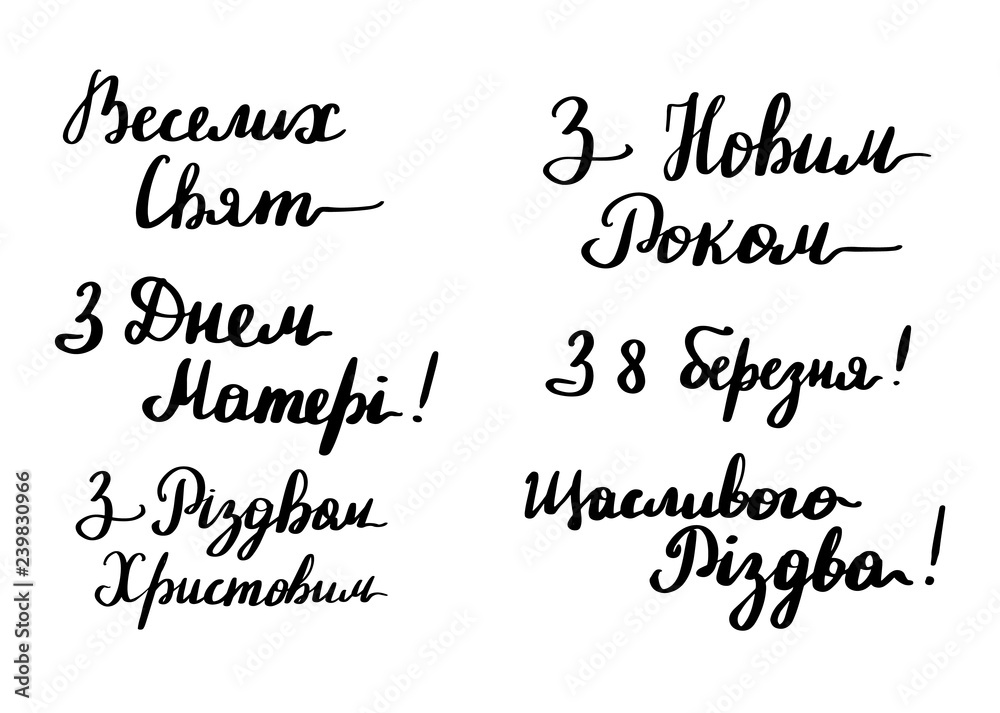 Веселих
Свят
З Днем
Матері!
З Різдвом
Христовим
З Новим
Роком
З 8 березня!
Щасливого
Різдва!
Adobe Stock | #239830966